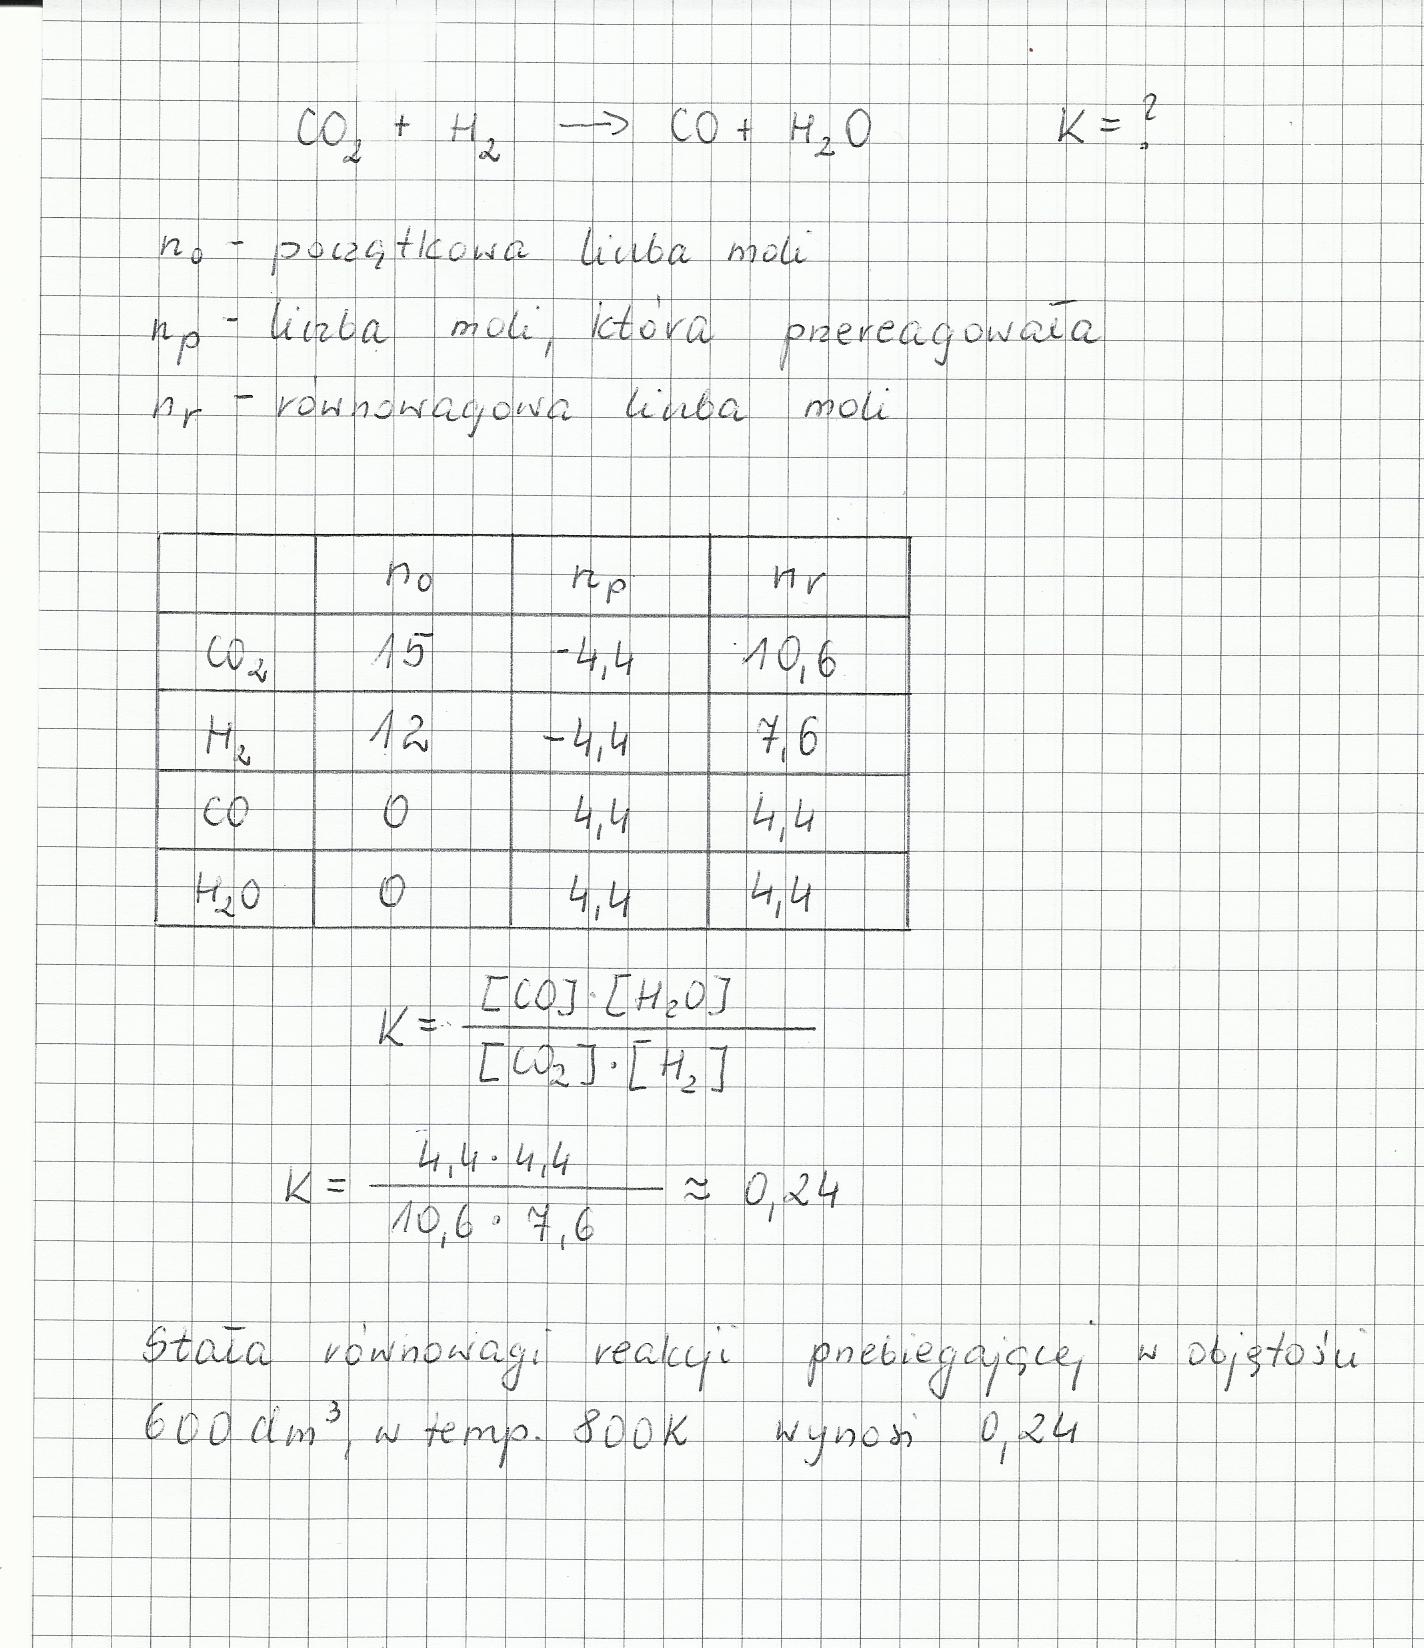 CO₂ + H₂ → CO + H₂O K = ?
n₀ - początkowa liczba moli
nₚ - liczba moli, która przereagowała
nᵣ - równowagowa liczba moli
n₀ nₚ nᵣ
CO₂ 15 -4,4 10,6
H₂ 12 -4,4 7,6
CO 0 4,4 4,4
H₂O 0 4,4 4,4
K = [CO]·[H₂O] / [CO₂]·[H₂]
K = 4,4 · 4,4 / 10,6 · 7,6 ≈ 0,24
Stała równowagi reakcji przebiegającej w objętości
600 dm³, w temp. 800K wynosi 0,24